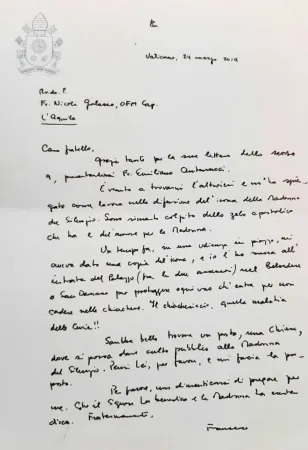 Vaticano, 24 marzo 2019
Rev.do P.
Fr. Nicola Galasso, OFM Cap.
L'Aquila
Caro fratello,
Grazie tanto per la sua lettera dello scorso
9, presentandomi Fr. Emiliano Antenucci.
È venuto a trovarmi l'altroieri e m'ha spie-
gato come lavora nella diffusione dell'icona della Madonna
del Silenzio. Sono rimasto colpito dello zelo apostolico
che ha e del amore per la Madonna.
Un tempo fa, in una udienza in piazza, mi
aveva dato una copia dell'icona, e io l'ho messa all'
entrata del Palazzo (tra le due ascensori) nel Belvedere
o San Damaso per proteggere ognuno ch'entra per non
cadere nelle chiacchere. Il chiacchericcio, quella malattia
della Curia!!
Sarebbe bello trovare un posto, una Chiesa,
dove si possa dare culto pubblico alla Madonna
del Silenzio. Pensi Lei, per favore, e mi faccia la pro-
posta.
Per favore, non dimenticarsi di pregare per
me. Che il Signore La benedica e la Madonna La custo-
disca. Fraternamente,
Francesco